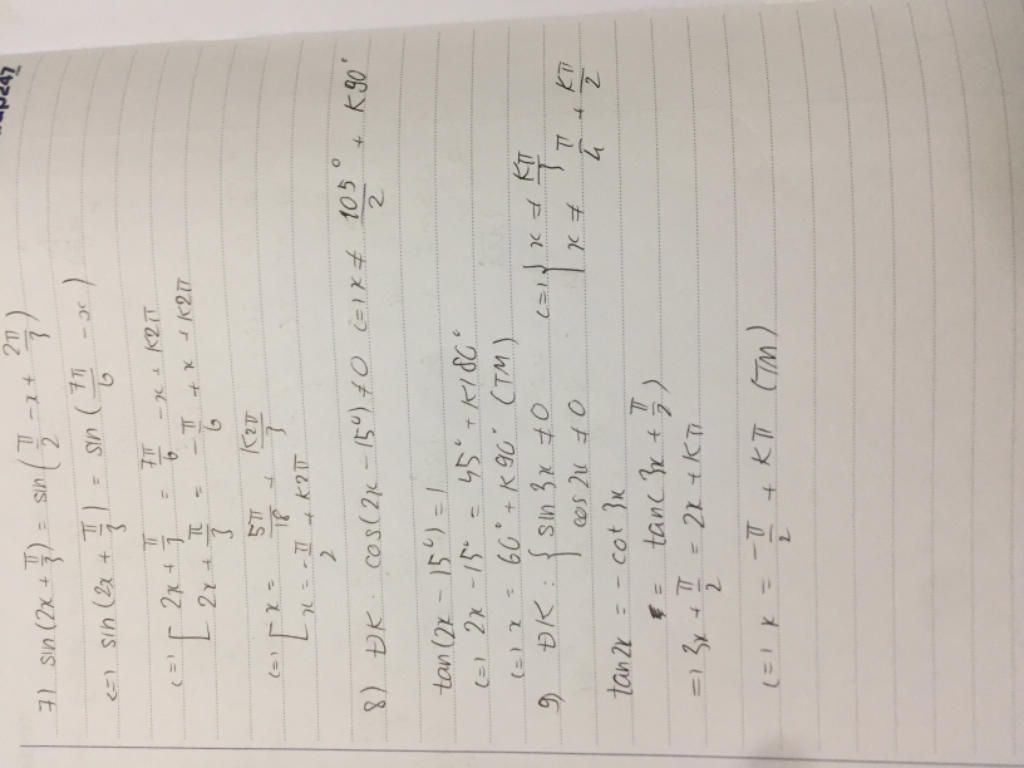 7) sin(2x + π/3) = sin(π/2 - x + 2π/3)
<=> sin(2x + π/3) = sin(7π/6 - x)
<=> [ 2x + π/3 = 7π/6 - x + k2π
[ 2x + π/3 = -π/6 + x + k2π
<=> [ x = 5π/18 + k2π/3
[ x = -π/2 + k2π
8) ĐK: cos(2x - 15°) ≠ 0 <=> x ≠ 105°/2 + k90°
tan(2x - 15°) = 1
<=> 2x - 15° = 45° + k180°
<=> x = 60° + k90° (TM)
9) ĐK: { sin3x ≠ 0 <=> { x ≠ kπ/3
{ cos2x ≠ 0 { x ≠ π/4 + kπ/2
tan2x = -cot3x
= tan(3x + π/2)
=> 3x + π/2 = 2x + kπ
<=> x = -π/2 + kπ (TM)